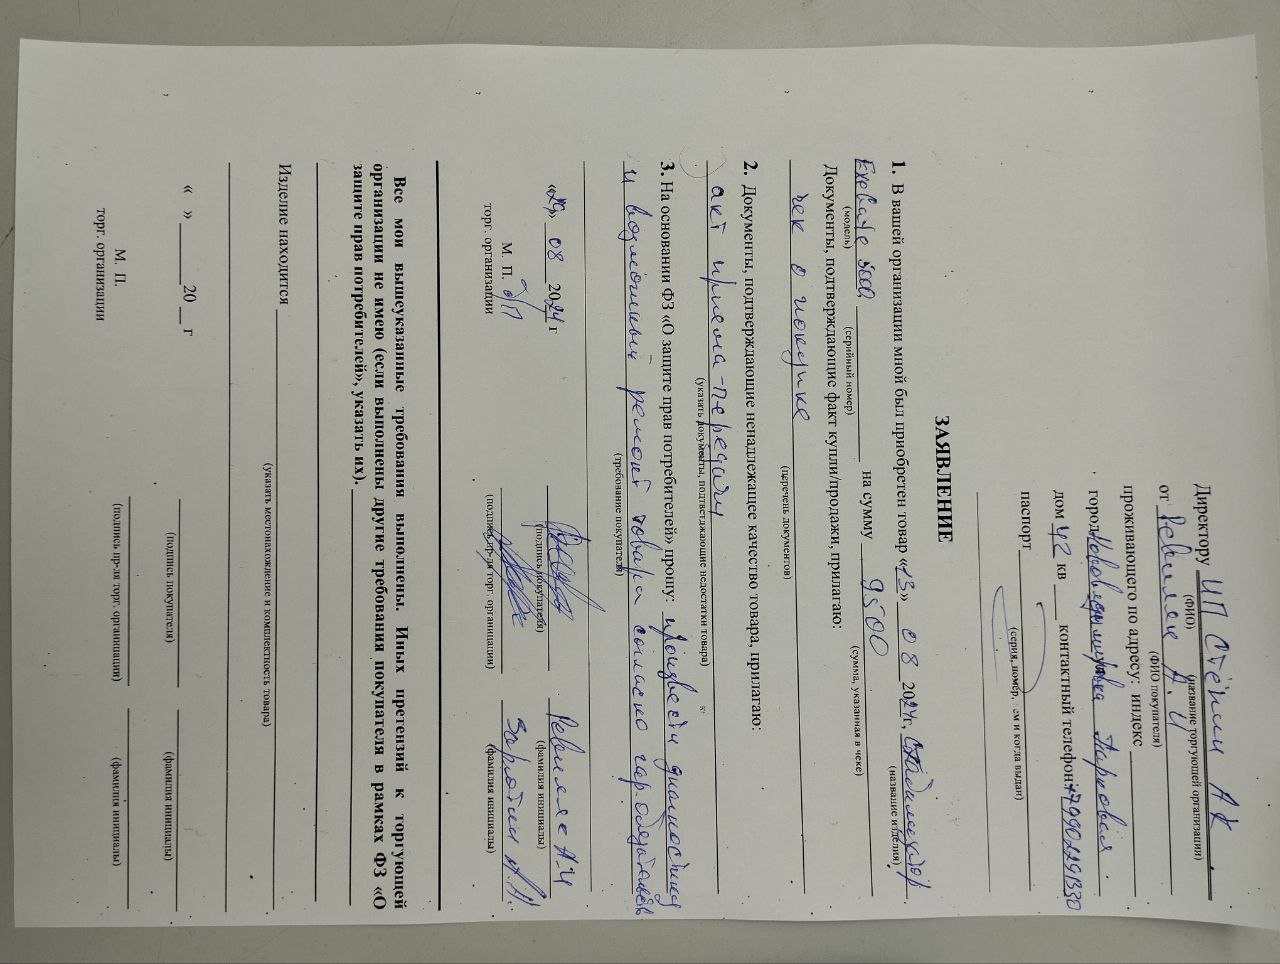 Директору ИП Стёпин А К
(ФИО) (название торгующей организации)
от А. И
(ФИО покупателя)
проживающего по адресу: индекс
город Парковая
дом 42 кв контактный телефон +79902291330
паспорт
(серия, номер, кем и когда выдан)
ЗАЯВЛЕНИЕ
1. В вашей организации мной был приобретен товар «13» 08 2024г,
(название изделия)
5000 на сумму 9500
(модель) (серийный номер) (сумма, указанная в чеке)
Документы, подтверждающие факт купли/продажи, прилагаю:
чек о покупке
(перечень документов)
2. Документы, подтверждающие ненадлежащее качество товара, прилагаю:
акт приема-передачи
(указать документы, подтверждающие недостатки товара)
3. На основании ФЗ «О защите прав потребителей» прошу: произвести диагностику
и возможный ремонт товара согласно гар обязательств
(требование покупателя)
«29» 08 2024 г А.И
(подпись покупателя) (фамилия инициалы)
М. П. б/П
торг. организации (подпись пр-ля торг. организации) (фамилия инициалы)
Все мои вышеуказанные требования выполнены. Иных претензий к торгующей
организации не имею (если выполнены другие требования покупателя в рамках ФЗ «О
защите прав потребителей», указать их).
Изделие находится
(указать местонахождение и комплектность товара)
« » 20 г
(подпись покупателя) (фамилия инициалы)
М. П.
торг. организации (подпись пр-ля торг. организации) (фамилия инициалы)